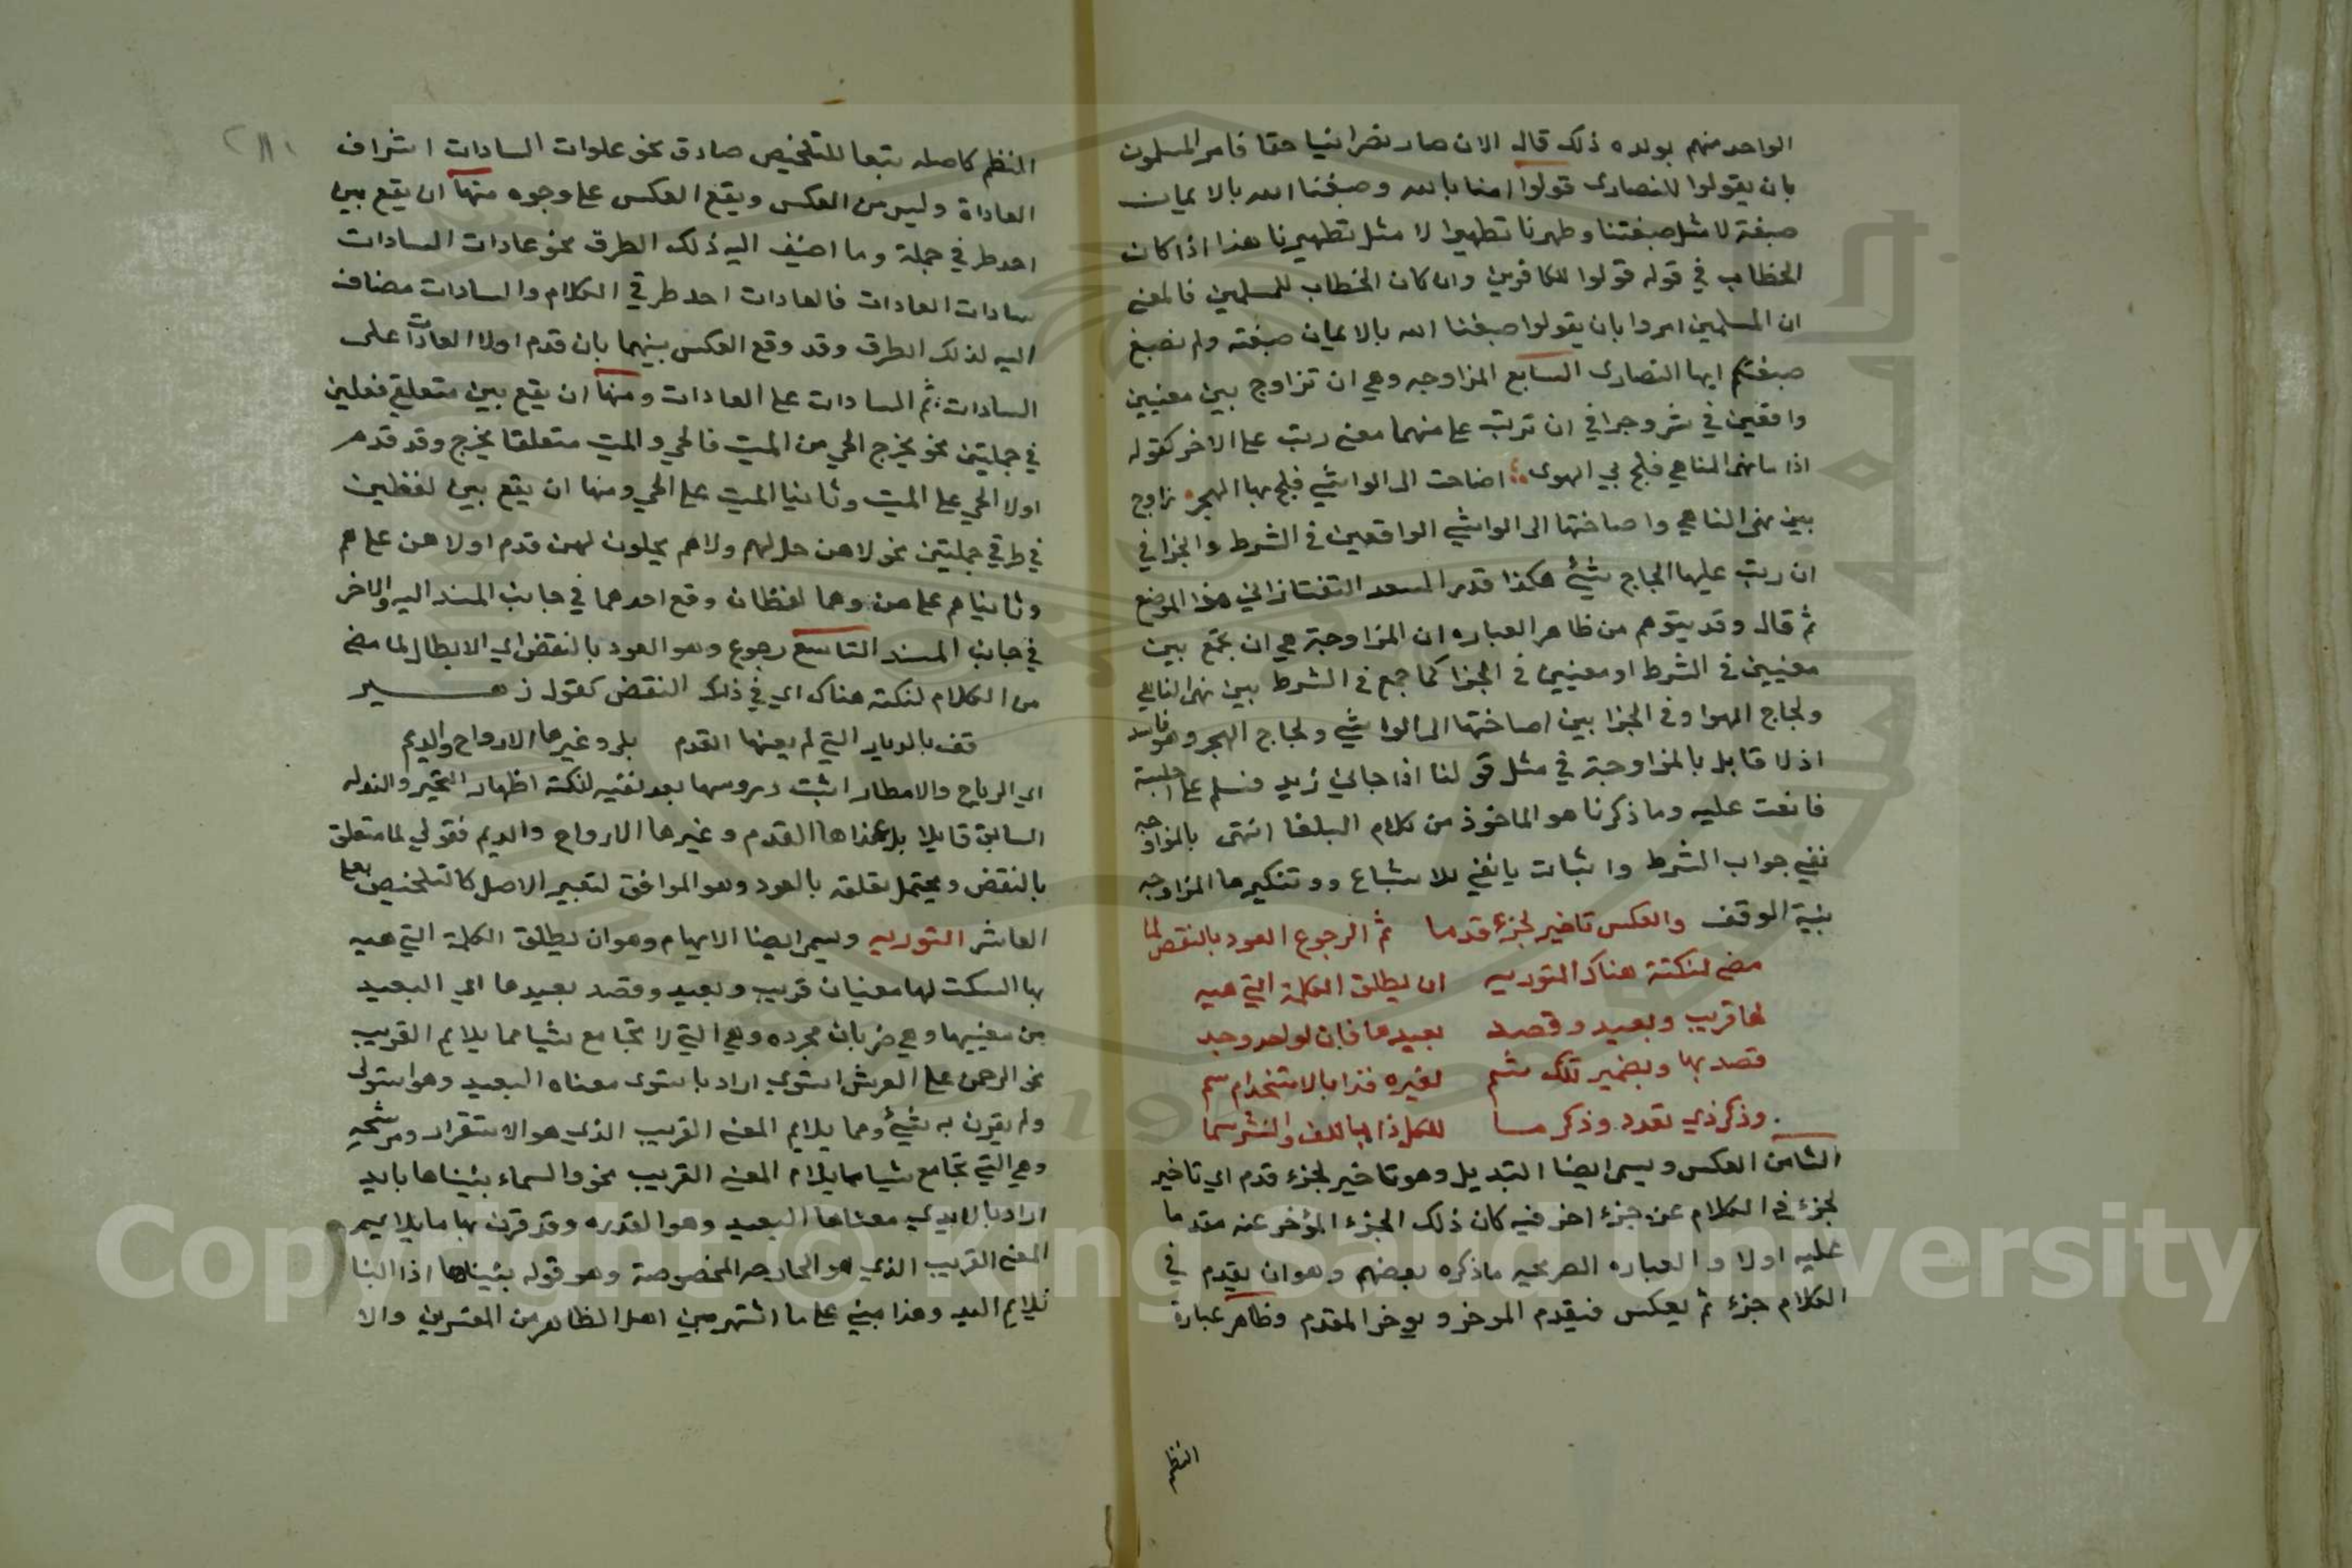 الواحد منهم بولده ذلك قال الان صار نصرانيا حقا فامر المسلمون
بان يقولوا للنصارى قولوا امنا بالله وصبغنا الله بالايمان
صبغة لا مثل صبغتنا وطهرنا تطهيرا لا مثل تطهيرنا هذا اذا كان
الخطاب في قوله قولوا للكافرين وان كان الخطاب للمسلمين فالمعنى
ان المسلمين امروا بان يقولوا صبغنا الله بالايمان صبغته ولم نصبغ
صبغتكم ايها النصارى السابع المزاوجه وهي ان تزاوج بين معنيين
واقعين في شر وجزا في ان ترتب على منهما معنى رتب على الاخر كقوله
اذا ما نهى الناهي فلج بي الهوى اصاخت الى الواشي فلج بها الهجر زاوج
بين نهى الناهي واصاختها الى الواشي الواقعين في الشرط والجزا في
ان رتب عليها لجاج شئ هكذا قدر السعد التفتازاني هذا الموضع
ثم قال وقد يتوهم من ظاهر العباره ان المزاوجة هي ان تجمع بين
معنيين في الشرط او معنيين في الجزا كما جمع في الشرط بين نهى الناهي
ولجاج الهوا وفي الجزا بين اصاختها الى الواشي ولجاج الهجر وهو فاسد
اذ لا قايل بالمزاوجة في مثل قولنا اذا جاني زيد فسلم علي اجلسته
فانعمت عليه وما ذكرنا هو الماخوذ من كلام البلغا انتهى بالمزاوجه
نفي جواب الشرط واثبات يا نفي للاشباع وو تنكيرها المزاوجه
بنية الوقف والعكس تاخير لجزء قدما ثم الرجوع العود بالنقض لما
مضى لنكتة هناك التوريه ان يطلق الكلمة التي هيه
لها قريب وبعيد وقصد بعيدها فان لواحد وجد
قصد بها وبضمير تلك ثم لغيره فذا بالاستخدام سم
وذكر ذي تعدد وذكر ما للكل ذا باللف والنشر سما
الثامن العكس ويسمى ايضا التبديل وهو تاخير لجزء قدم اي تاخير
لجزء في الكلام عن جزء اخر فيه كان ذلك الجزء المؤخر عنه مقدما
عليه اولا والعباره الصريحيه ما ذكره بعضهم وهو ان يقدم في
الكلام جزء ثم يعكس فيقدم الموخر ويوخر المقدم وظاهر عبارة
النظم
النظم كاصله تبعا للتلخيص صادق نحو علوات السادات اشراف
العاداة وليس من العكس ويقع العكس على وجوه منها ان يقع بين
احد طرفي جملة وما اضيف اليه ذلك الطرف نحو عادات السادات
سادات العادات فالعادات احد طرفي الكلام والسادات مضاف
اليه لذلك الطرف وقد وقع العكس بينهما بان قدم اولا العادات على
السادات ثم السادات على العادات ومنها ان يقع بين متعلقي فعلين
في جملتين نحو يخرج الحي من الميت فالحي والميت متعلقا يخرج وقد قدم
اولا الحي على الميت وثانيا الميت على الحي ومنها ان يقع بين لفظين
في طرفي جملتين نحو لا هن حل لهم ولا هم يحلون لهن قدم اولا هن على هم
وثانيا هم على هن وهما لفظان وقع احدهما في جانب المسند اليه والاخر
في جانب المسند التاسع رجوع وهو العود بالنقض اي الابطال لما مضى
من الكلام لنكتة هناك اي في ذلك النقض كقول زهير
قف بالديار التي لم يعفها القدم بلى وغيرها الارواح والديم
اي الرياح والامطار اثبت دروسها بعد نفيه لنكتة اظهار التحير والتوله
السابق قايلا بلى عفاها القدم وغيرها الارواح والديم فقولي لما متعلق
بالنقض ويحتمل تعلقه بالعود وهو الموافق لتعبير الاصل كالتلخيص بعلى
العاشر التوريه ويسمى ايضا الايهام وهو ان يطلق الكلمة التي هيه
بها السكت لها معنيان قريب وبعيد وقصد بعيدها اي البعيد
من معنييها وهي ضربان مجرده وهي التي لا تجامع شيا مما يلايم القريب
نحو الرحمن على العرش استوى اراد باستوى معناه البعيد وهو استولى
ولم يقرن به شئ مما يلايم المعنى القريب الذي هو الاستقرار ومرشحه
وهي التي تجامع شيا مما يلام المعنى القريب نحو والسماء بنيناها بايد
اراد بالايدي معناها البعيد وهو القدره وقد قرن بها ما يلايم
المعنى القريب الذي هو الجارحه المخصوصة وهو قوله بنيناها اذ البنا
يلايم اليد وهذا مبني على ما اشتهر بين اهل الظاهر من المفسرين والا